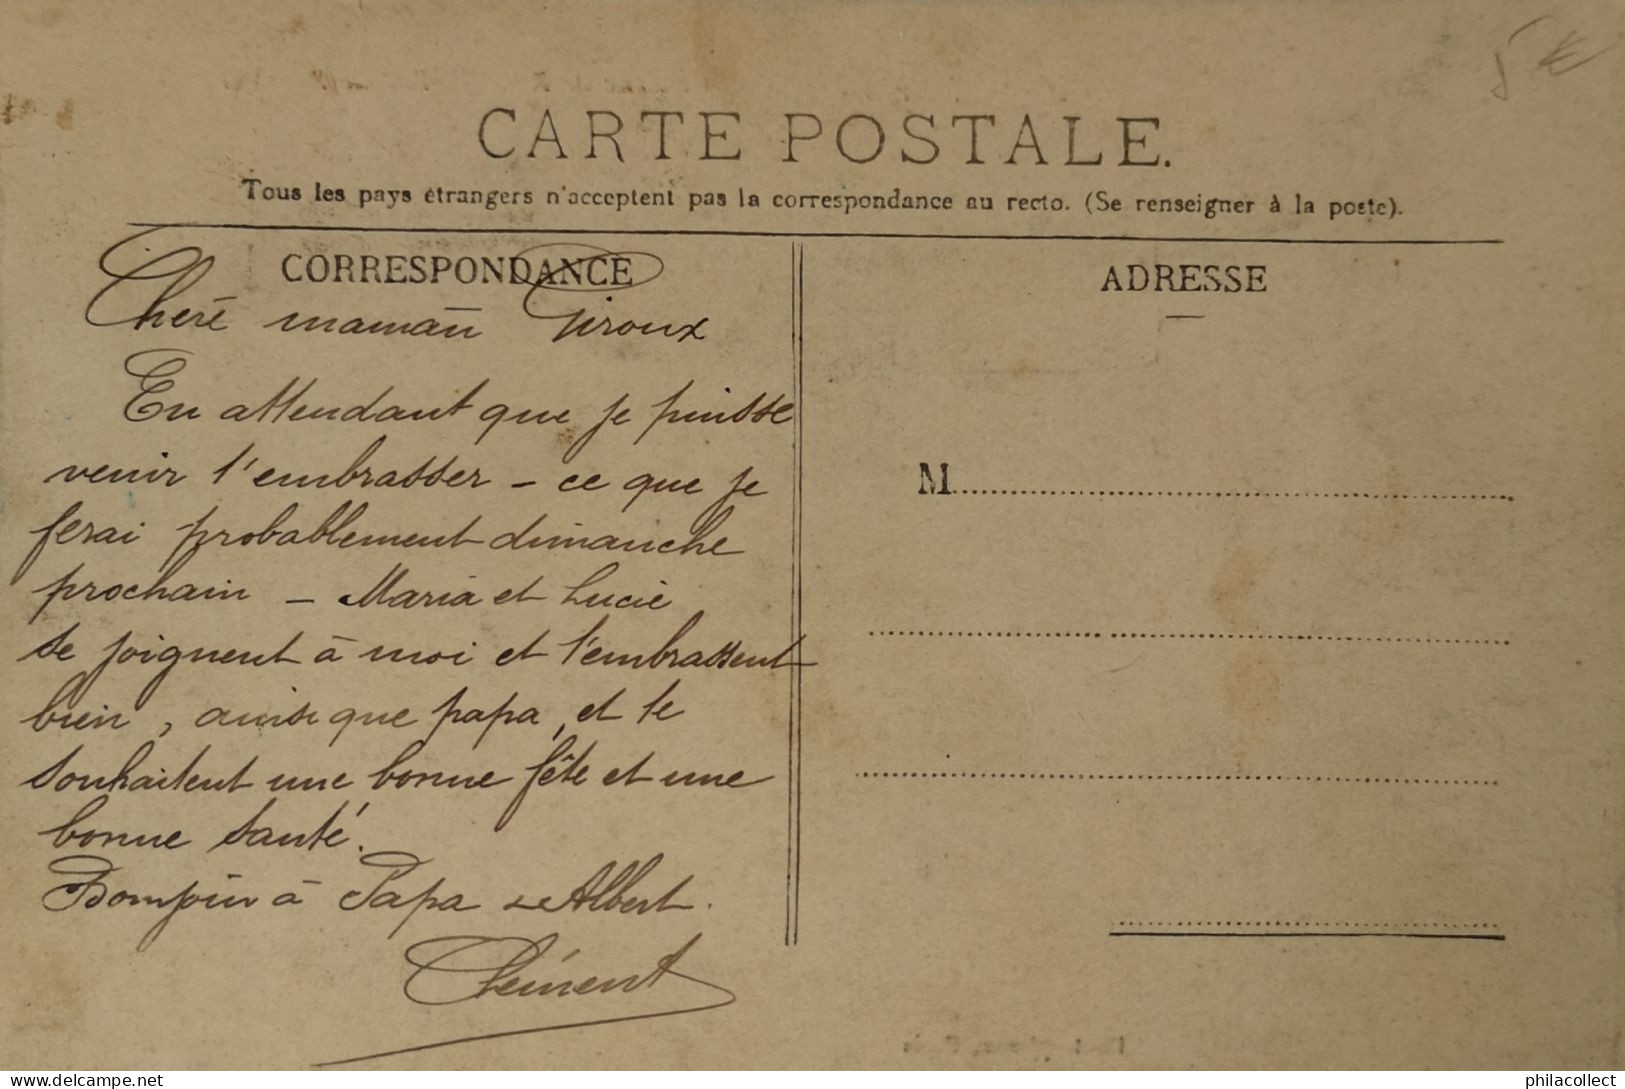 5 €
CARTE POSTALE.
Tous les pays étrangers n'acceptent pas la correspondance au recto. (Se renseigner à la poste).
CORRESPONDANCE
Chère maman Giroux
En attendant que je puisse
venir t'embrasser – ce que je
ferai probablement dimanche
prochain – Maria et Lucie
se joignent à moi et t'embrassent
bien, ainsi que papa, et te
souhaitent une bonne fête et une
bonne santé.
Bonjour à Papa et Albert.
Clément
ADRESSE
M
delcampe.net
philacollect